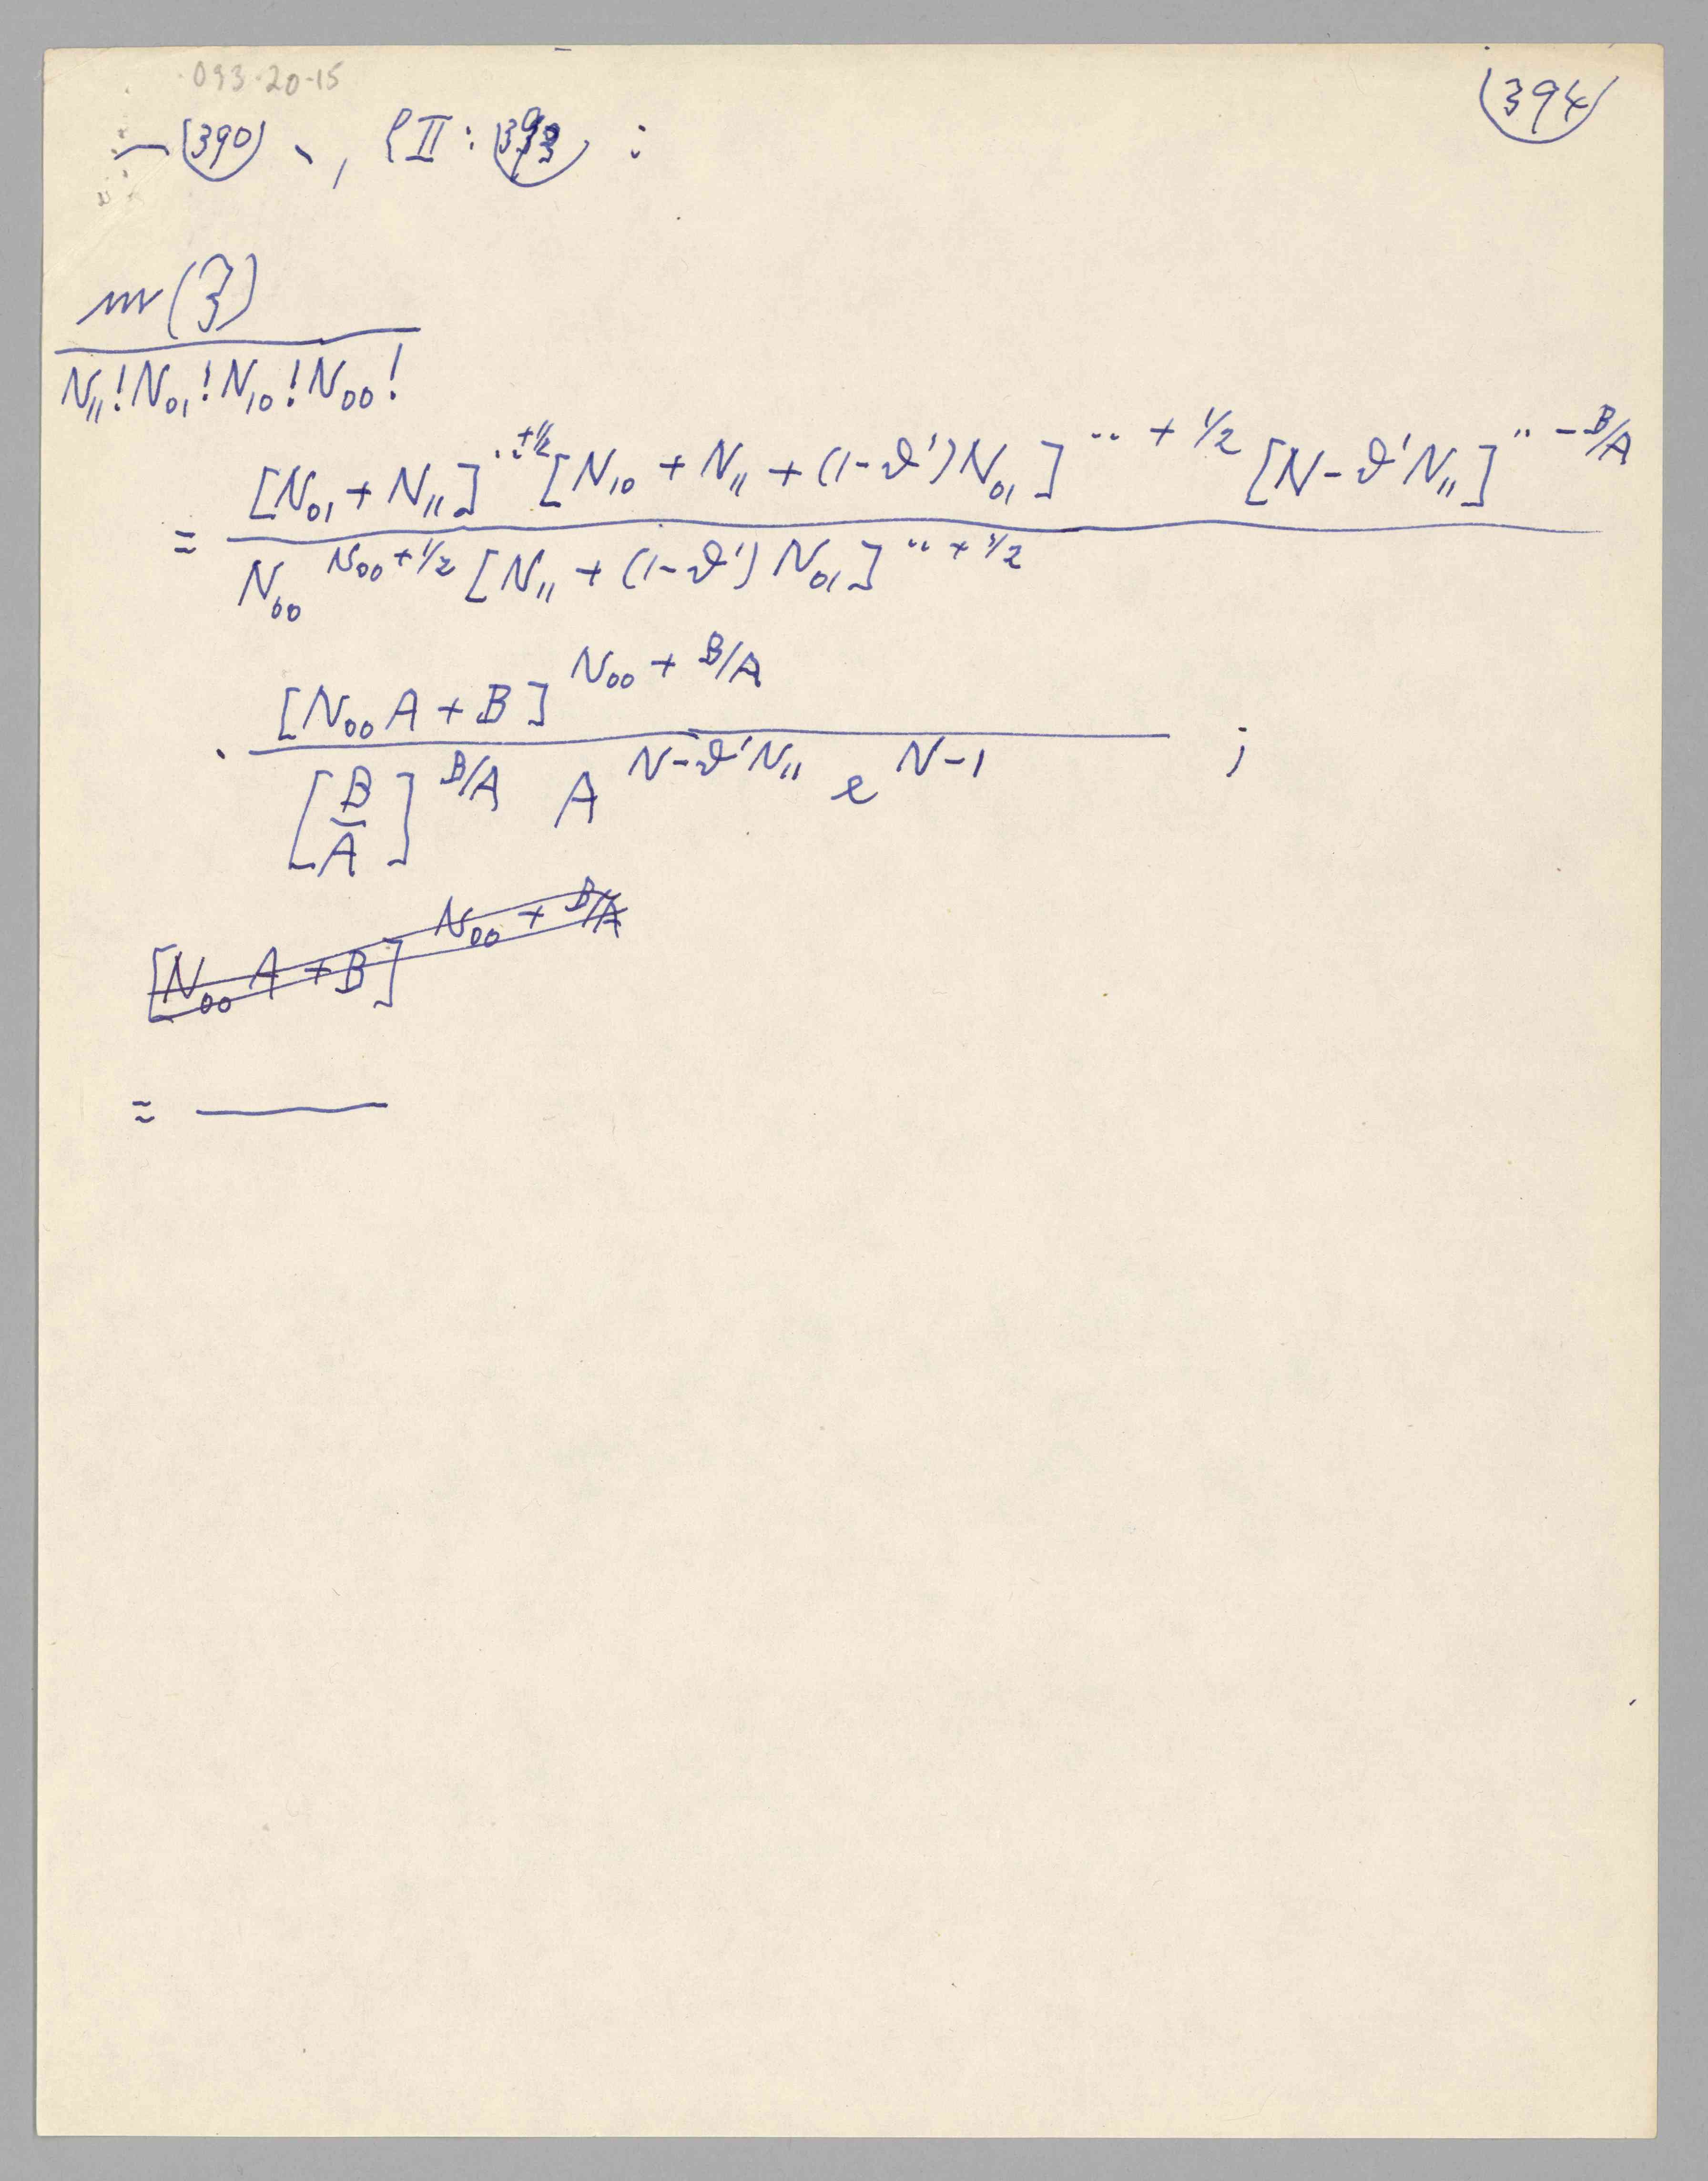 093-20-15
394
390 , II: 393 :
m(3)
N₁₁! N₀₁! N₁₀! N₀₀!
= [N₀₁ + N₁₁]^{··+1/2} [N₁₀ + N₁₁ + (1-ϑ')N₀₁]^{·· + 1/2} [N-ϑ'N₁₁]^{·· - B/A}
N₀₀^{N₀₀+1/2} [N₁₁ + (1-ϑ')N₀₁]^{·· + 1/2}
· [N₀₀A + B]^{N₀₀ + B/A} ;
[B/A]^{B/A} A^{N-ϑ'N₁₁} e^{N-1}
[N₀₀A + B]^{N₀₀ + B/A}
= ——